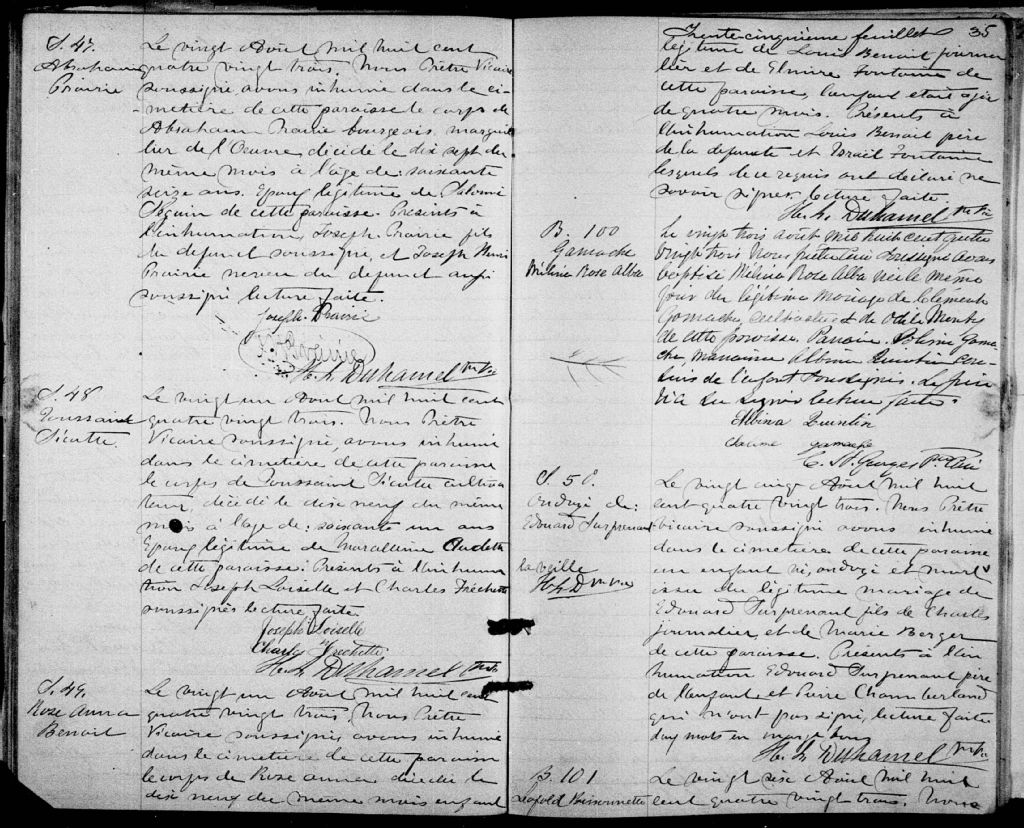 S. 47.
Abraham
Prairie
Le vingt Août mil huit cent
quatre vingt trois, Nous Prêtre Vicaire
soussigné avons inhumé dans le ci-
-metière de cette paroisse le corps de
Abraham Prairie bourgeois, marguil
lier de l'Oeuvre, décédé le dix sept du
même mois à l'âge de: soixante
seize ans. Epoux légitime de Salomé
de cette paroisse. Présents à
l'inhumation, Joseph Prairie fils
du defunct soussigné, et Joseph
Prairie neveu du defunct aussi
soussigné lecture faite.
Joseph Prairie
H. L. Duhamel ptre Vic
S. 48
Toussaint
Sicotte
Le vingt un Août mil huit cent
quatre vingt trois. Nous Prêtre
Vicaire soussigné, avons inhumé
dans le cimetière de cette paroisse
le corps de Toussaint Sicotte cultiva
teur, décédé le dix neuf du même
mois à l'âge de: soixante un ans
Epoux légitime de Marcelline Audette
de cette paroisse. Présents à l'inhuma
tion Joseph Loiselle et Charles Frechette
soussignés lecture faite
Joseph Loiselle
Charles Frechette
H. L. Duhamel ptre Vic
S. 49.
Rose Anna
Benoit
Le vingt un Août mil huit cent
quatre vingt trois, Nous Prêtre
Vicaire soussigné, avons inhumé
dans le cimetière de cette paroisse
le corps de Rose Anna décédée le
dix neuf du même mois enfant
35
Trente cinquième feuillet
légitime de Louis Benoit journa
lier et de Elmire Fontaine de
cette paroisse, l'enfant était agée
de quatre mois. Présents à
l'inhumation Louis Benoit père
de la defunte et Israël Fontaine
lesquels de ce requis ont déclaré ne
savoir signer. lecture faite.
H. L. Duhamel ptre Vic
B. 100
Gamache
Mélina Rose Alba
Le vingt trois août mil huit cent quatre
vingt trois Nous prêtre curé soussigné avons
baptisé Mélina Rose Alba née le même
jour du légitime mariage de Clement
Gamache cultivateur & de Odile
de cette paroisse. Parrain Gama
che, marraine Albina Quintin cou
sins de l'enfant soussignés. Le père
lecture faite.
Albina Quintin
gamache
C. St. Georges Ptre Curé
S. 50.
Ondoyé de:
Edouard Surprenant
la veille
H L D ptre Vic
Le vingt cinq Août mil huit
cent quatre vingt trois. Nous Prêtre
vicaire soussigné avons inhumé
dans le cimetière de cette paroisse
un enfant né, ondoyé et mort
issu du légitime mariage de
Edouard Surprenant fils de Charles
journalier et de Marie Berger
de cette paroisse. Présents à l'in
humation Edouard Surprenant père
de l'enfant et Pierre Chamberland
qui n'ont pas signé, lecture faite
deux mots en marge bons
H. L. Duhamel ptre Vic
B. 101
Leopold Boissonnette
Le vingt six Août mil huit
cent quatre vingt trois. Nous